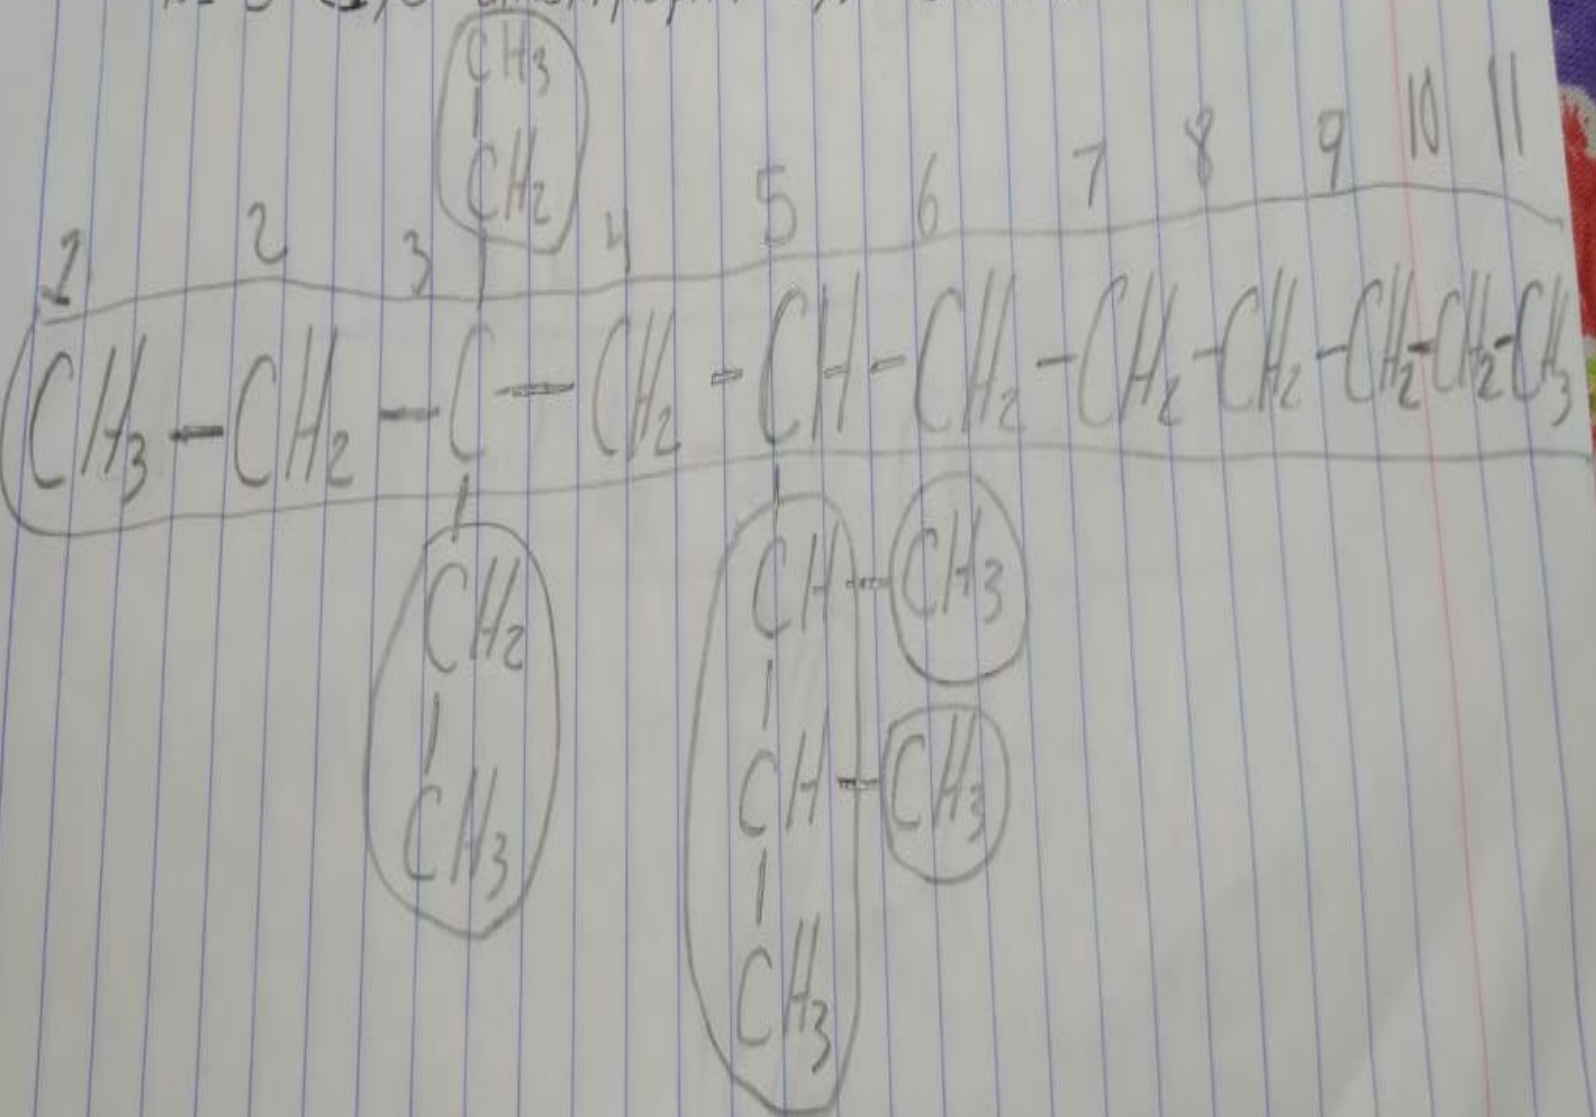 CH3
CH2
1 2 3 4 5 6 7 8 9 10 11
CH3-CH2-C-CH2-CH-CH2-CH2-CH2-CH2-CH2-CH3
CH2 CH-CH3
CH3 CH-CH3
CH3